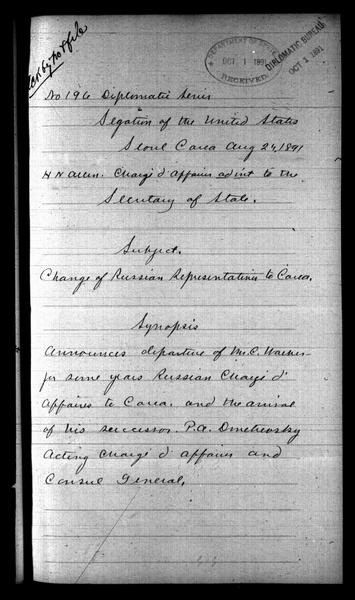 ack by not & file
DEPARTMENT OF STATE
OCT 1 1891
RECEIVED
DIPLOMATIC BUREAU
OCT 3 1891
No 196 Diplomatic Series
Legation of the United States
Seoul Corea Aug 24, 1891
H N Allen. Chargé d'Affaires ad int to the
Secretary of State.
Subject.
Change of Russian Representative to Corea.
Synopsis
Announces departure of Mr. C. Waeber
for some years Russian Chargé d'
Affaires to Corea. and the arrival
of his successor. P.A. Dmetrevsky
Acting Chargé d'Affaires and
Consul General.